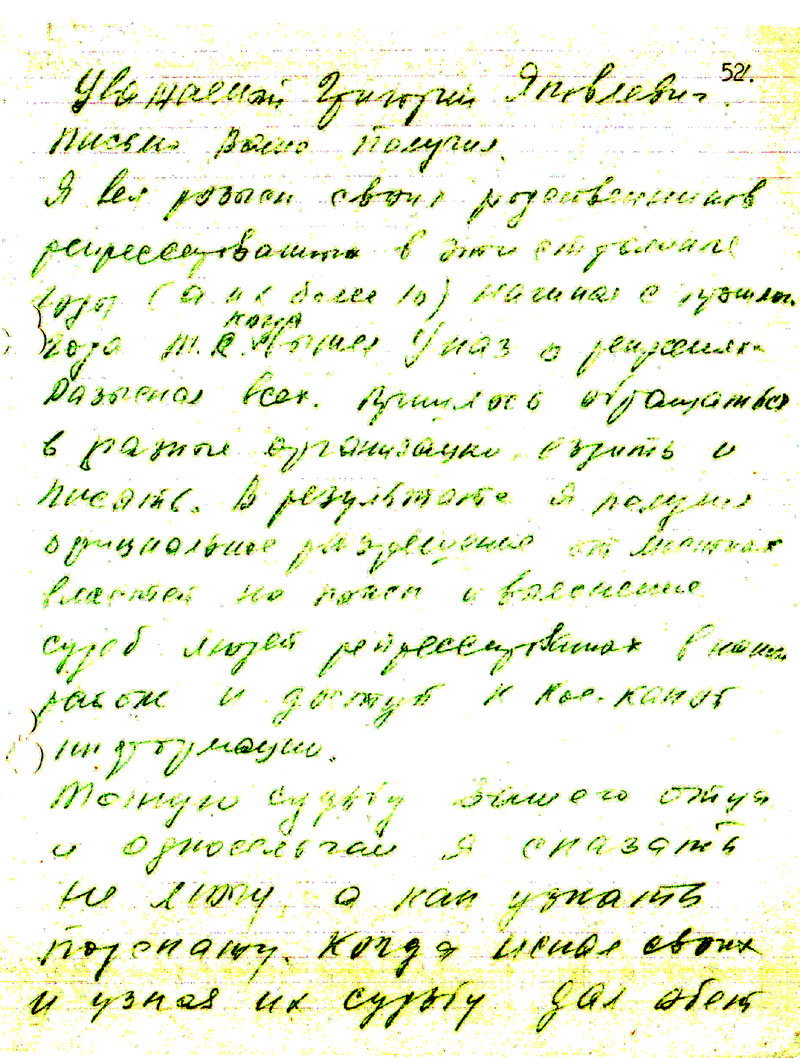 52.
Уважаемый Григорий Яковлевич.
Письмо Ваше получил.
Я вел розыск своих родственников
репрессированных в эти страшные
годы (а их более 10) начиная с прошлого
года т.е. когда вышел Указ о репрессиях
Разыскал всех. Пришлось обращаться
в разные организации, ездить и
писать. В результате я получил
официальное разрешение от местных
властей на поиск и выяснение
судеб людей репрессированых в нашем
районе и доступ к кое-какой
информации.
Точную судьбу Вашего отца
и односельчан я сказать
не могу, а как узнать
подскажу. Когда искал своих
и узнал их судьбу дал обет